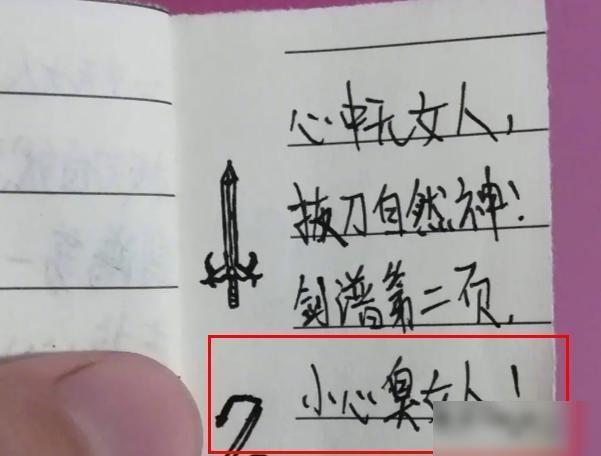 心中无女人,
拔刀自然神!
剑谱第二页,
小心臭女人!